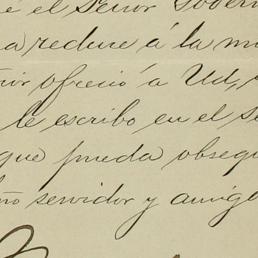 é el Señor Gober
a reduce á la mi
ñor ofreció a Ud,
le escribo en el se
que pueda obsequ
ño servidor y amigo